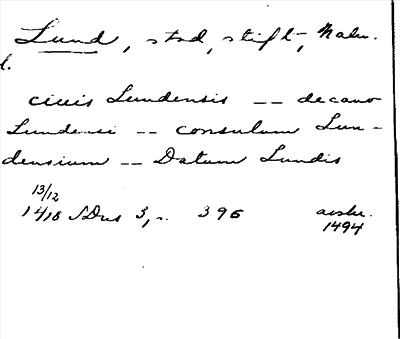 Lund, stad, stift-, Malm.
l.
ciuis Lundensis -- decano
Lundensi -- consulum Lun-
densium -- Datum Lundis
13/12
1418 SDns 3, s. 396 avskr.
1494